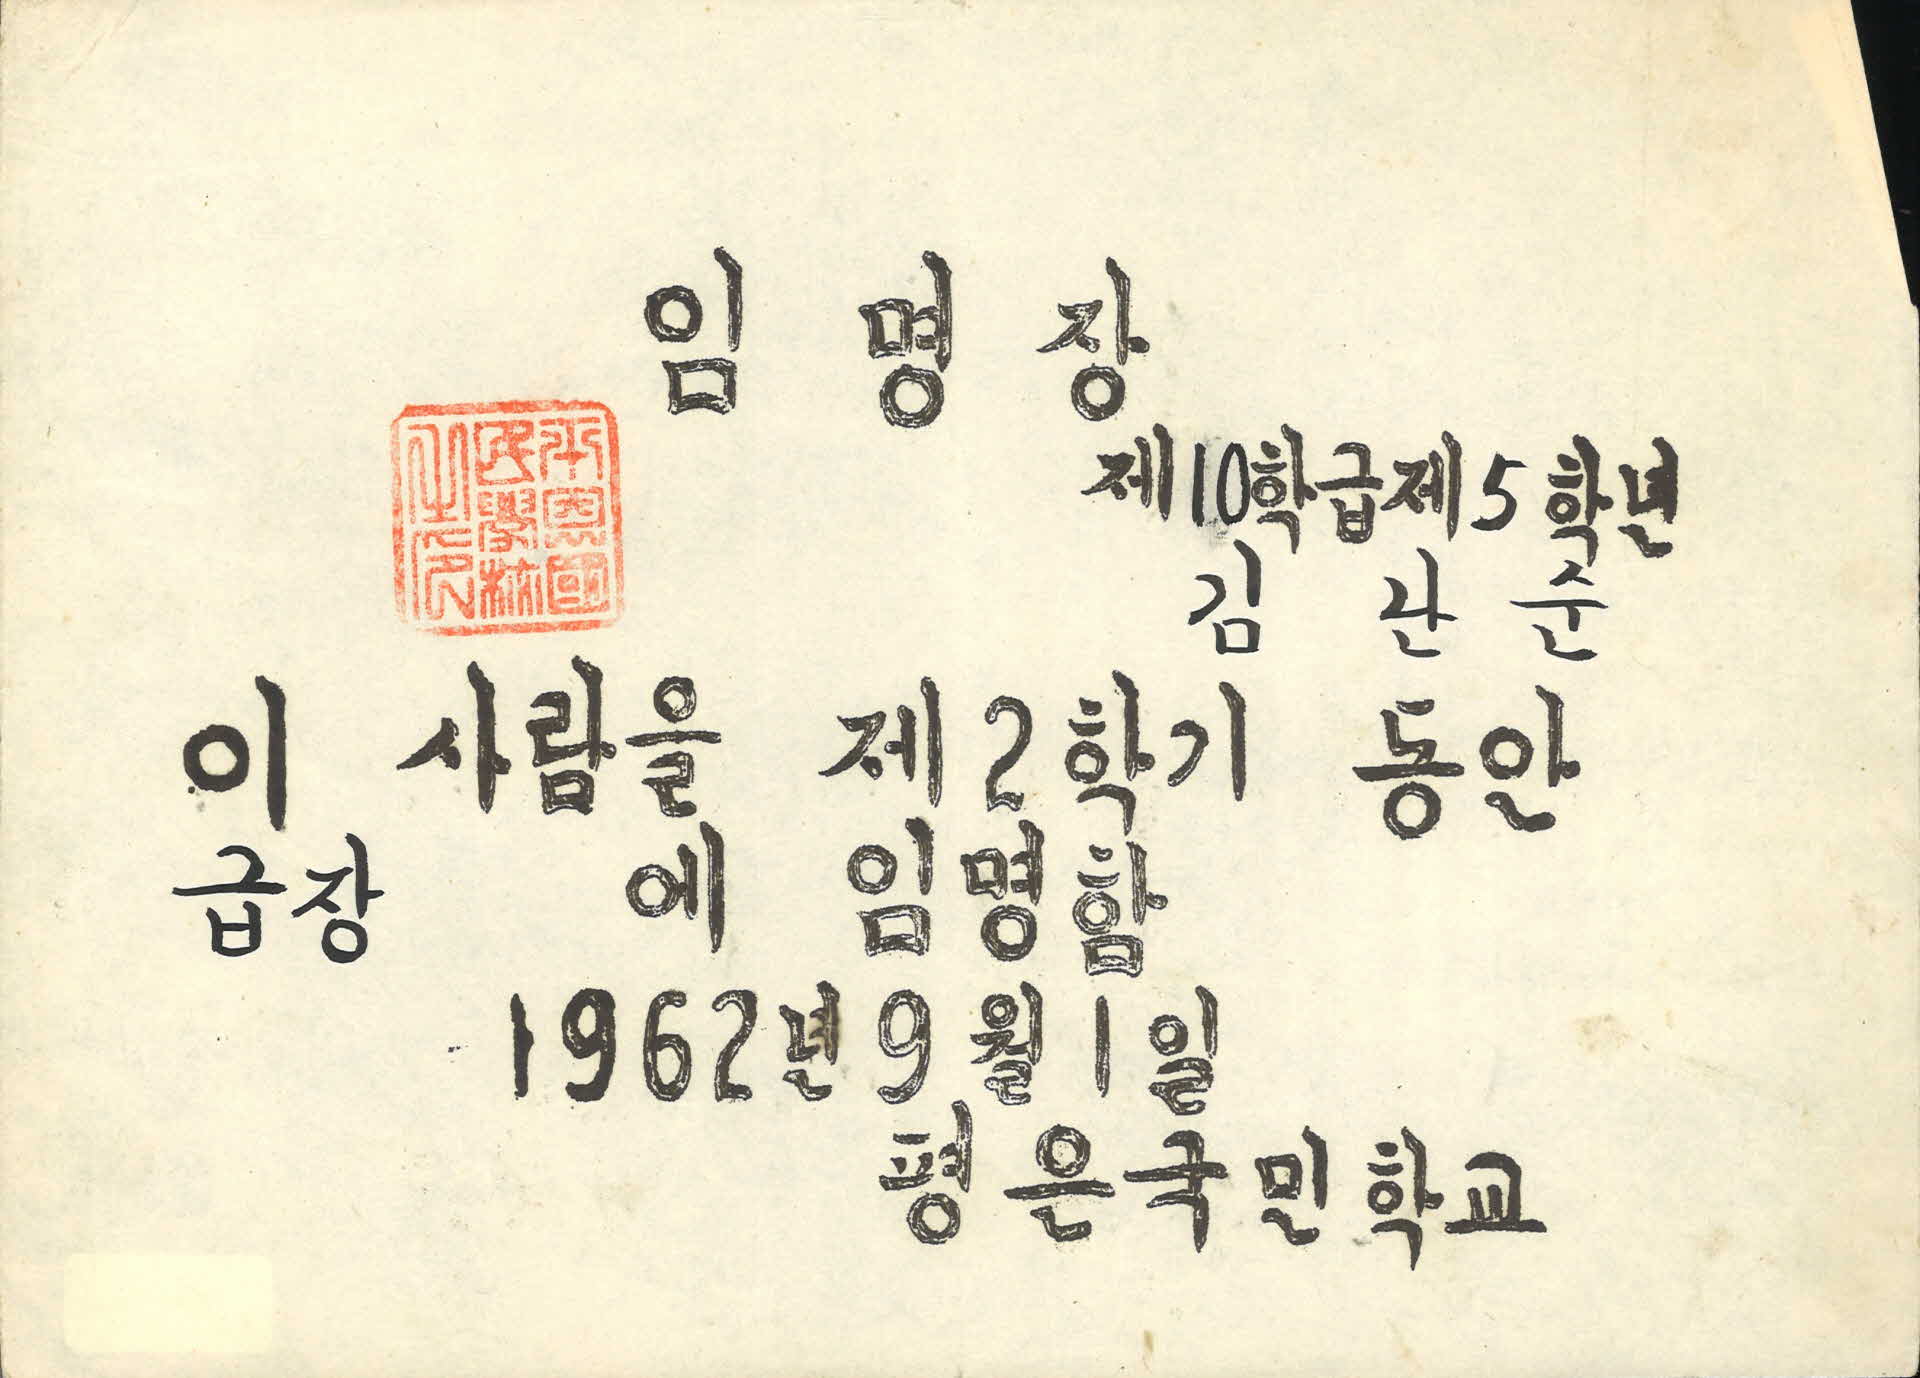 임 명 장
平恩國
民學校
之印
제10학급제5학년
김 순
이 사람을 제2학기 동안
급장 에 임명함
1962년 9월 1일
평은국민학교